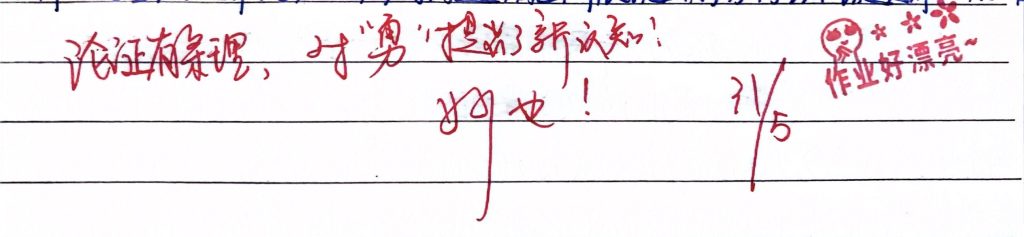 论证有条理，对“勇”提出了新认知！
好也！
31/5
作业好漂亮~